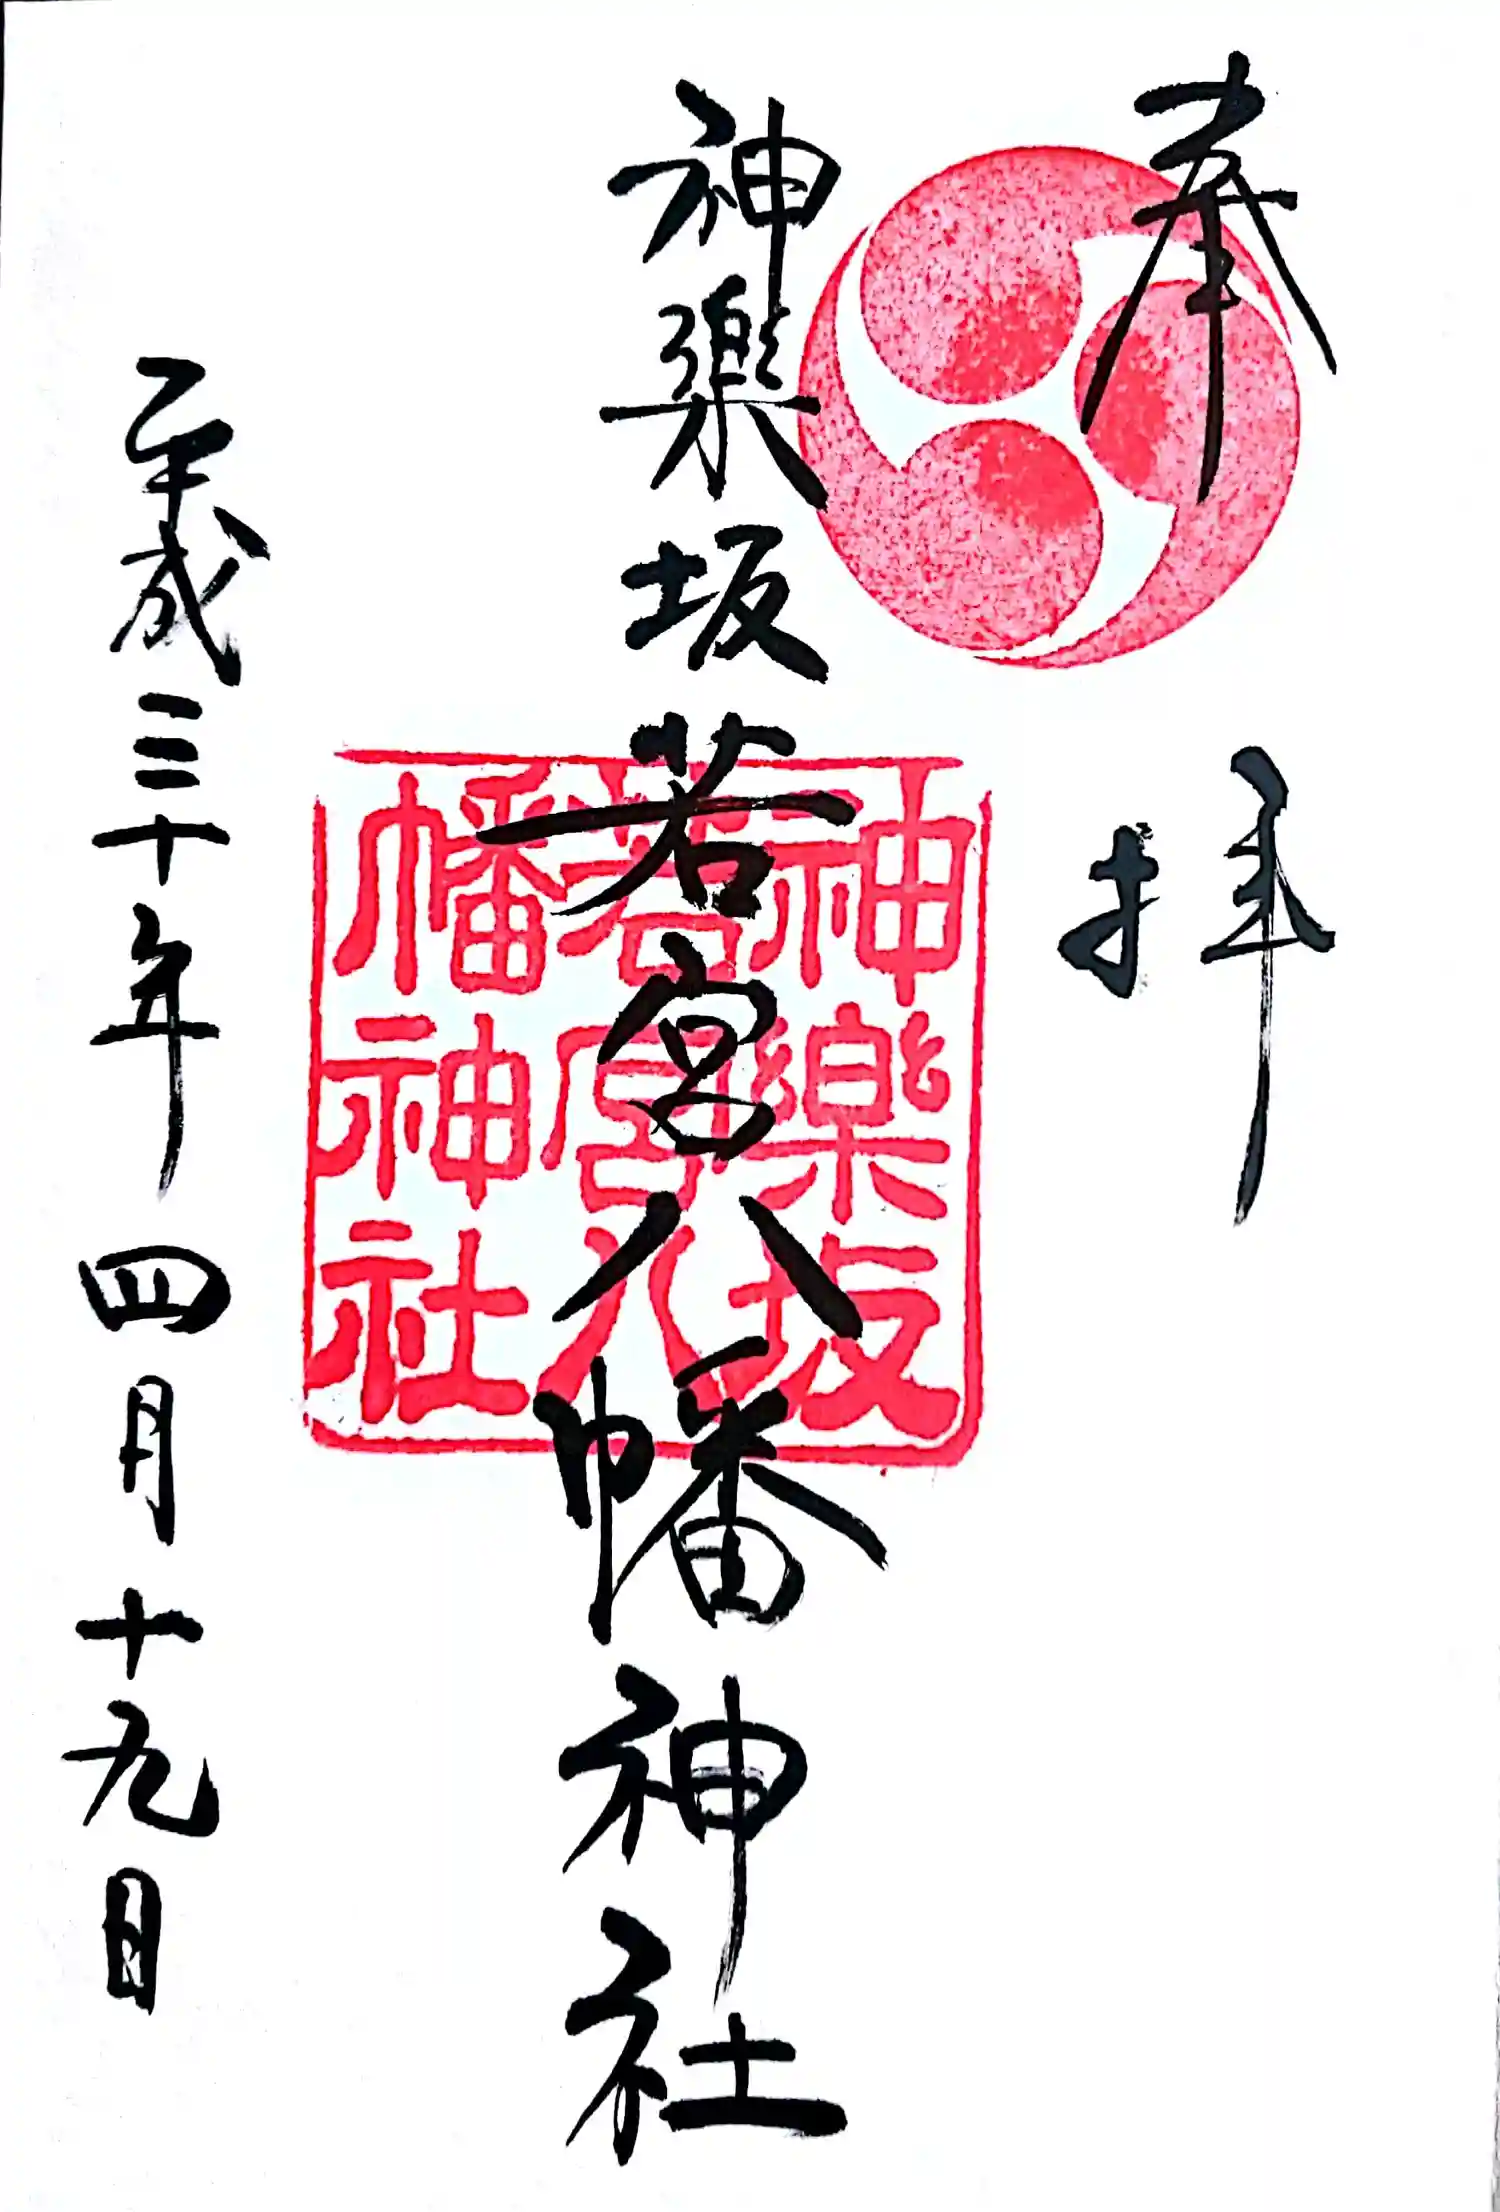 奉拝
神楽坂若宮八幡神社
神樂坂
若宮八
幡神社
平成三十年四月十九日